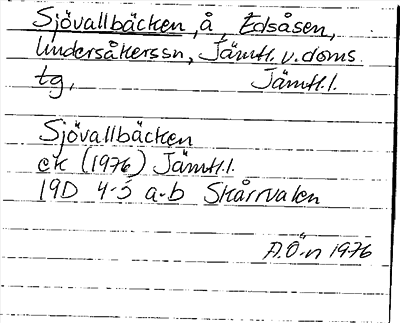 Sjövallbäcken, å, Edsåsen,
Undersåkerssn, Jämtl. v. doms.
tg, Jämtl. l.
Sjövallbäcken
ek (1976) Jämtl. l.
19D 4-5 a-b Skårrvalen
A.Ö-n 1976